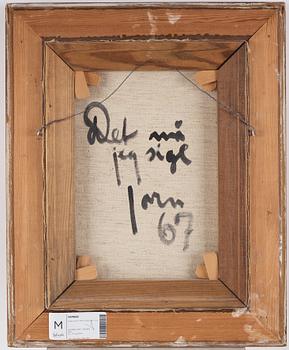 Det må
jeg sige
Jorn
67
M